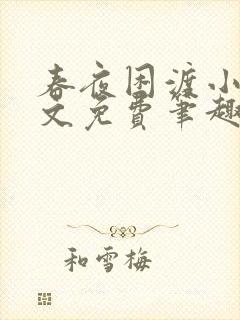 春夜困渡小
文免费笔趣
和雪梅